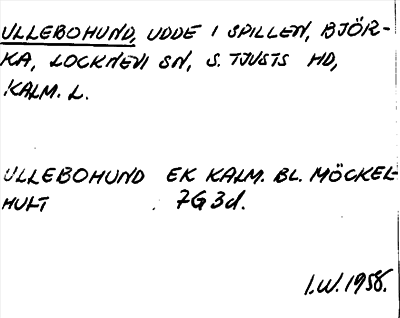 ULLEBOHUND, UDDE I SPILLEN, BJÖR-
KA, LOCKNEVI SN, S. TJUSTS HD,
KALM. L.
ULLEBOHUND EK KALM. BL. MÖCKEL-
HULT 7G3d.
I.W. 1958.